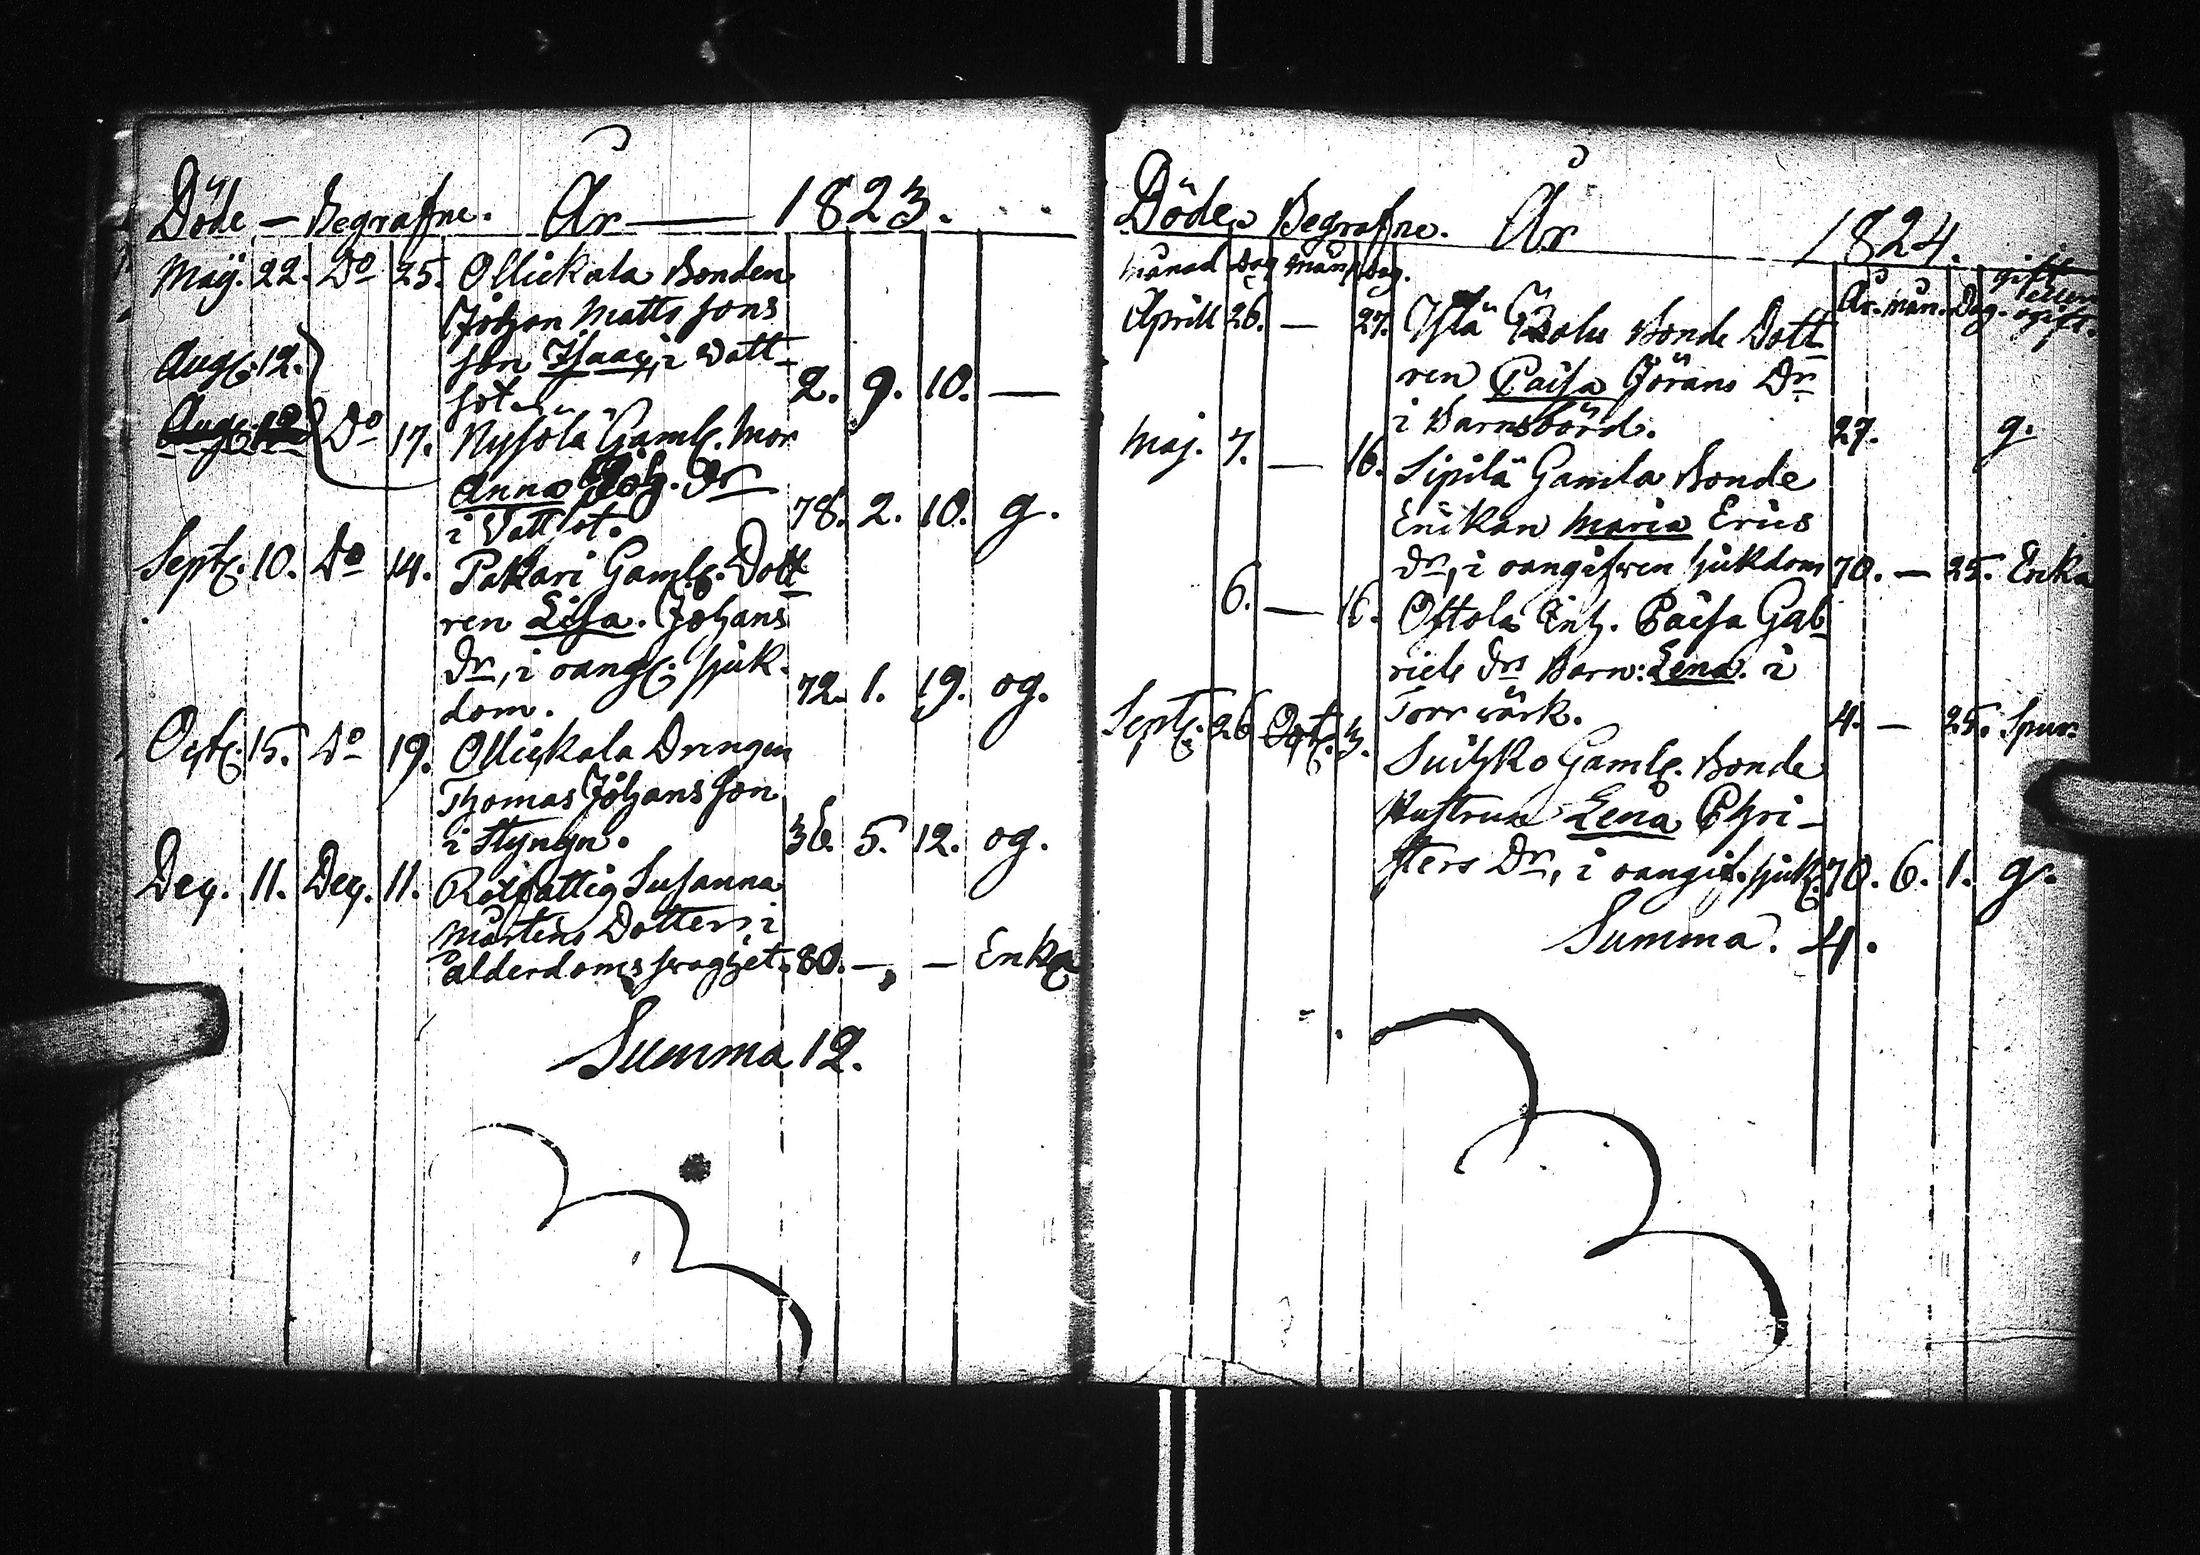 Döde — Begrafne. År — 1823.
Maij. 22. Do 25. Ollickala Bonden
Johan Matts sons
son Isaac, i Watt-
sot. 2. 9. 10. —
Aug. 12.
Aug. 12 Do 17. Nysola Gaml. Mor
Anna Joh. Dr
i Wattsot. 78. 2. 10. g.
Sept. 10. Do 14. Pakari Gaml. Dott
ren Lisa. Johans
Dr, i oang. sjuk-
dom. 72. 1. 19. og.
Oct. 15. Do 19. Ollickala Drengen
Thomas Johans son
i Styngn. 36. 5. 12. og.
Dec. 11. Dec. 11. Rotfattig Susanna
Mårtens Dotter, i
ålderdoms swaghet. 80. — — Enka
Summa 12.
Döde Begrafne. År 1824.
Månad Dag Mån. Dag. År. Mån. Dag. gift eller ogift.
Aprill 26. — 27. Bonde Dott
ren Caisa Görans Dr
i Barnsbörd. 27. g.
Maj. 7. — 16. Sipilä Gamla Bonde
Enckan Maria Erics
Dr, i oangifwen sjukdom 70. — 25. Enka
6. — 16. Ottola Inh. Caisa Gab
riels Drs Barn: Lena. i
Torrwärk. 4. — 25. Spur.
Sept. 26 Oct. 3. Suitzko Gaml. Bonde
Hustrun Lena Chri-
sters Dr, i oangif. sjuk. 70. 6. 1. g.
Summa. 4.